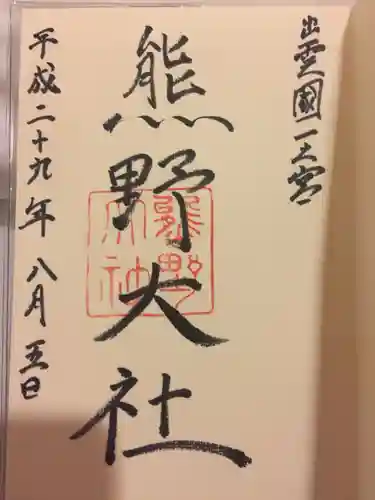 出雲國一之宮
熊野大社
熊野大社
平成二十九年八月五日